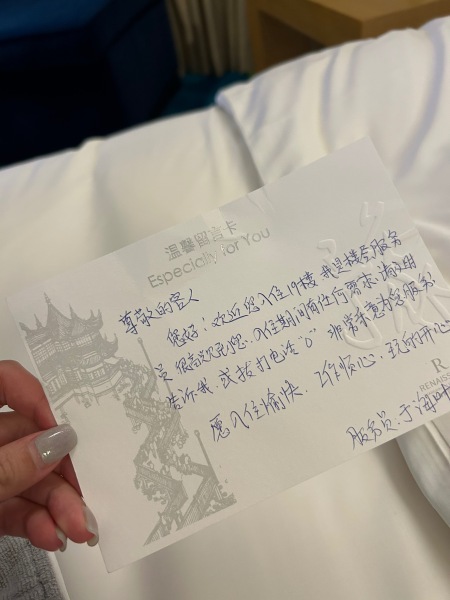 温馨留言卡
Especially for You
尊敬的客人
您好：欢迎您入住19楼 我是楼层服务
员 很高兴见到您. 入住期间有任何需求. 请及时
告诉我. 或拨打电话"0" 非常乐意为您服务
愿入住愉快. 工作顺心. 玩的开心
服务员: 于海
R
RENAISS